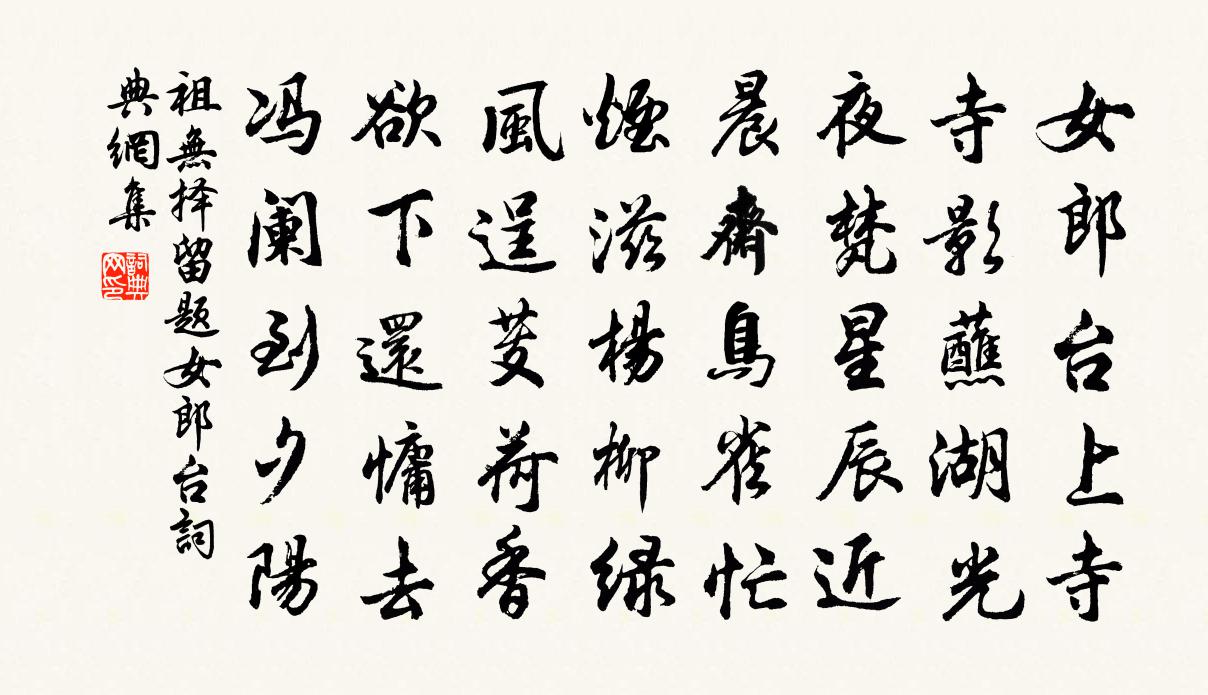 女郎台上寺
寺影蘸湖光
夜梵星辰近
晨齋鳥雀忙
煙滋楊柳绿
風逞芰荷香
欲下還慵去
冯阑到夕陽
祖無择留题女郎台詞
典網集
詞典
网印